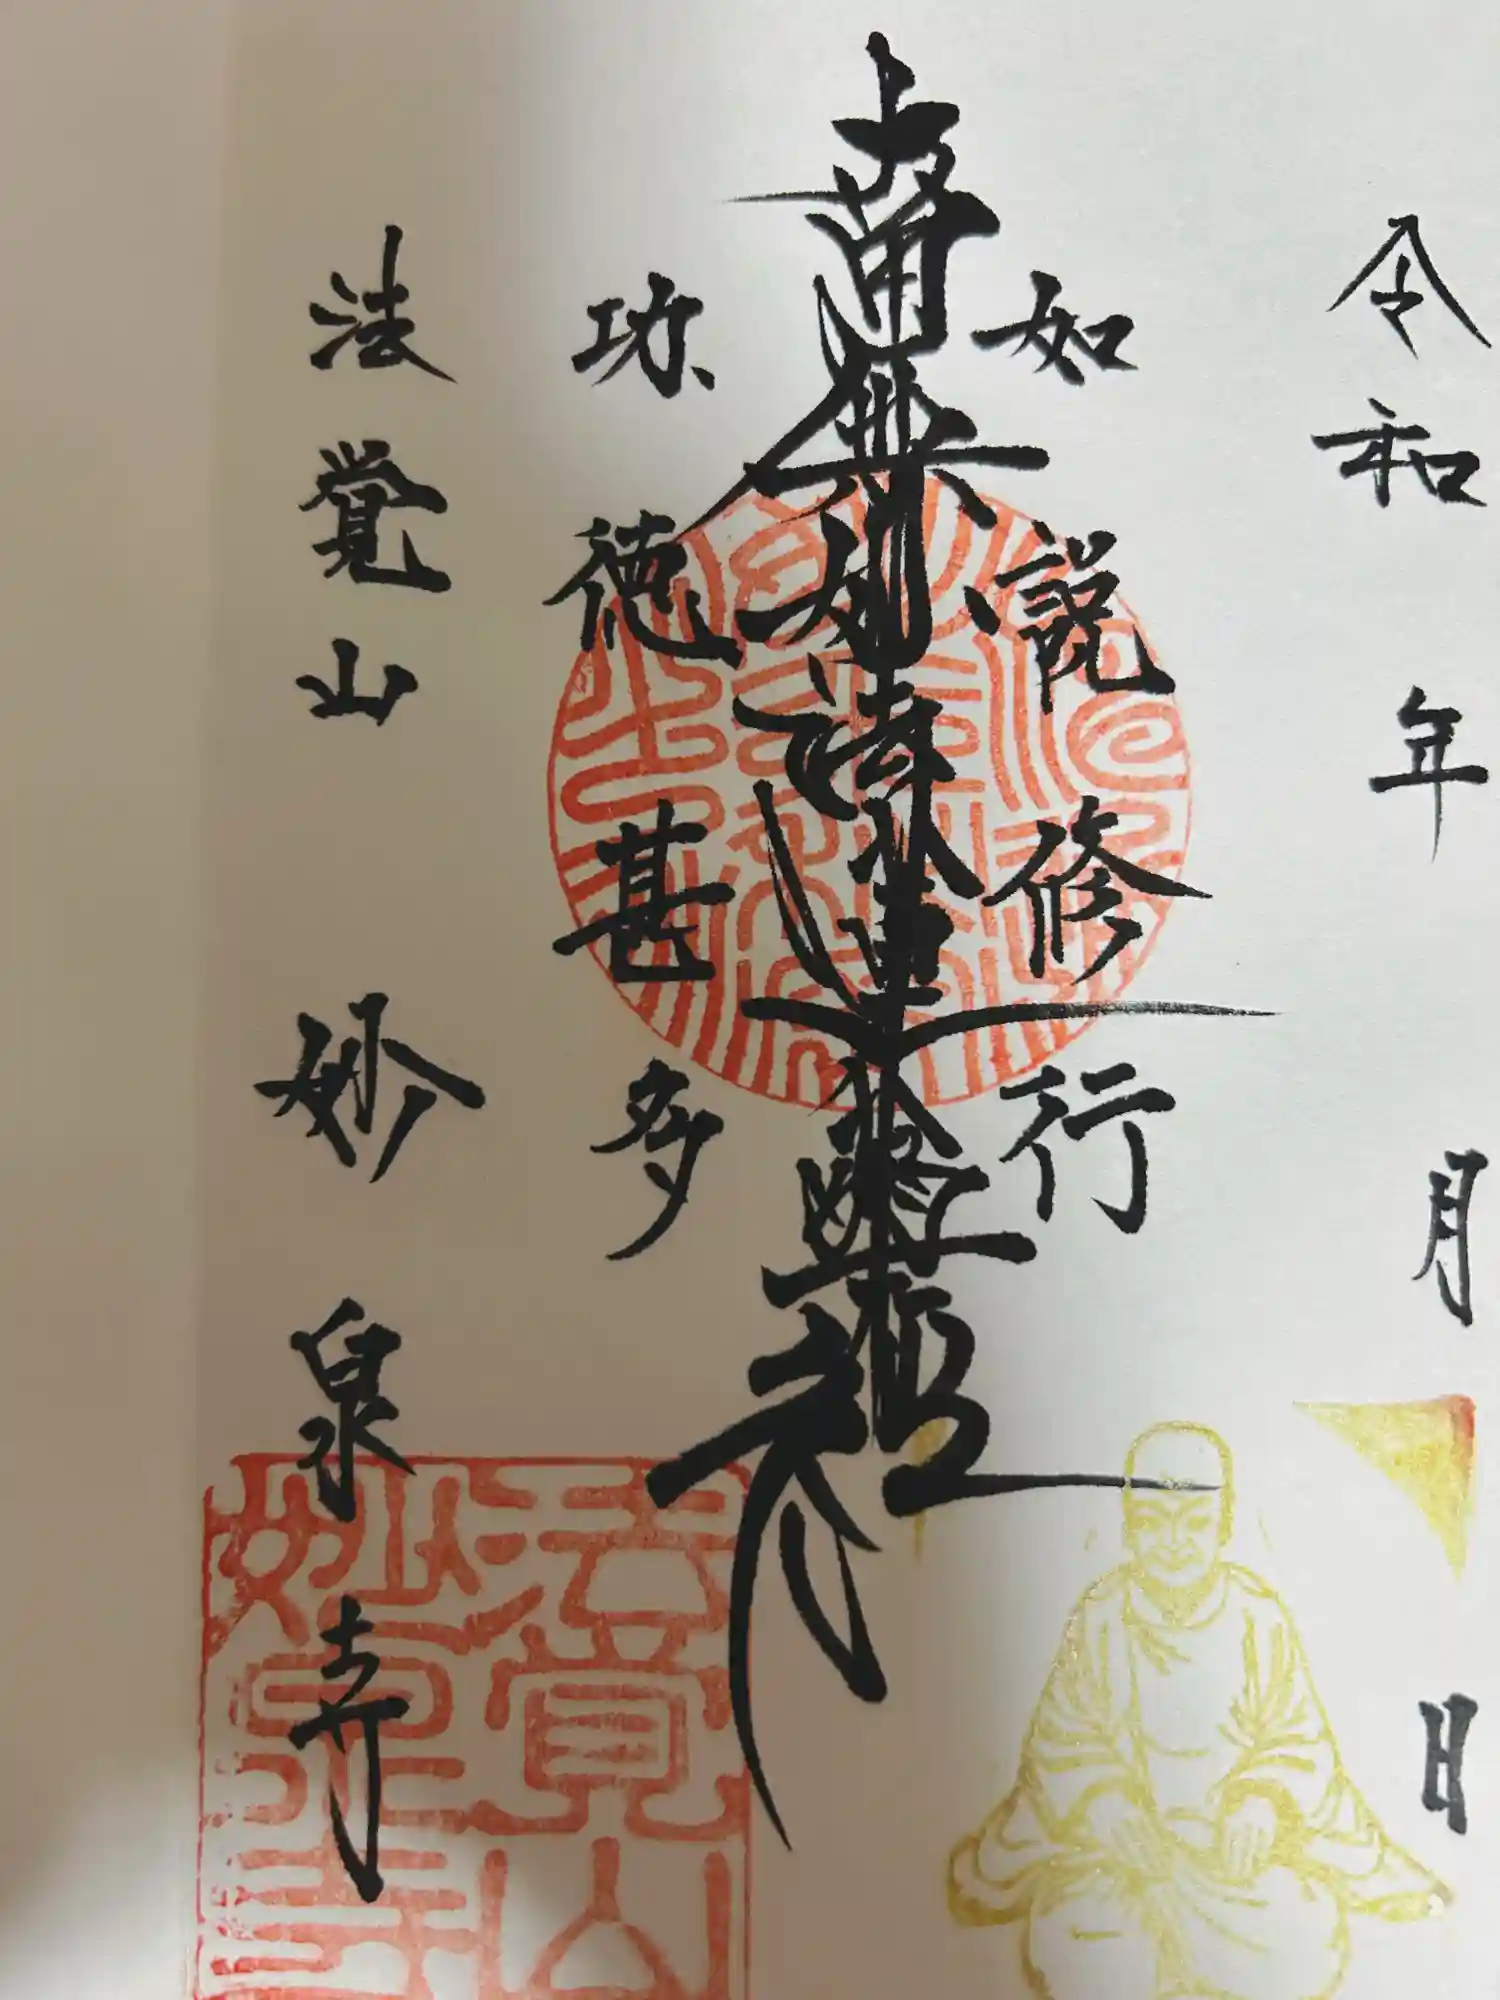 令和 年 月 日
如説修行
南無妙法蓮華経
功徳甚多
法覚山 妙泉寺
法覺山
妙泉寺